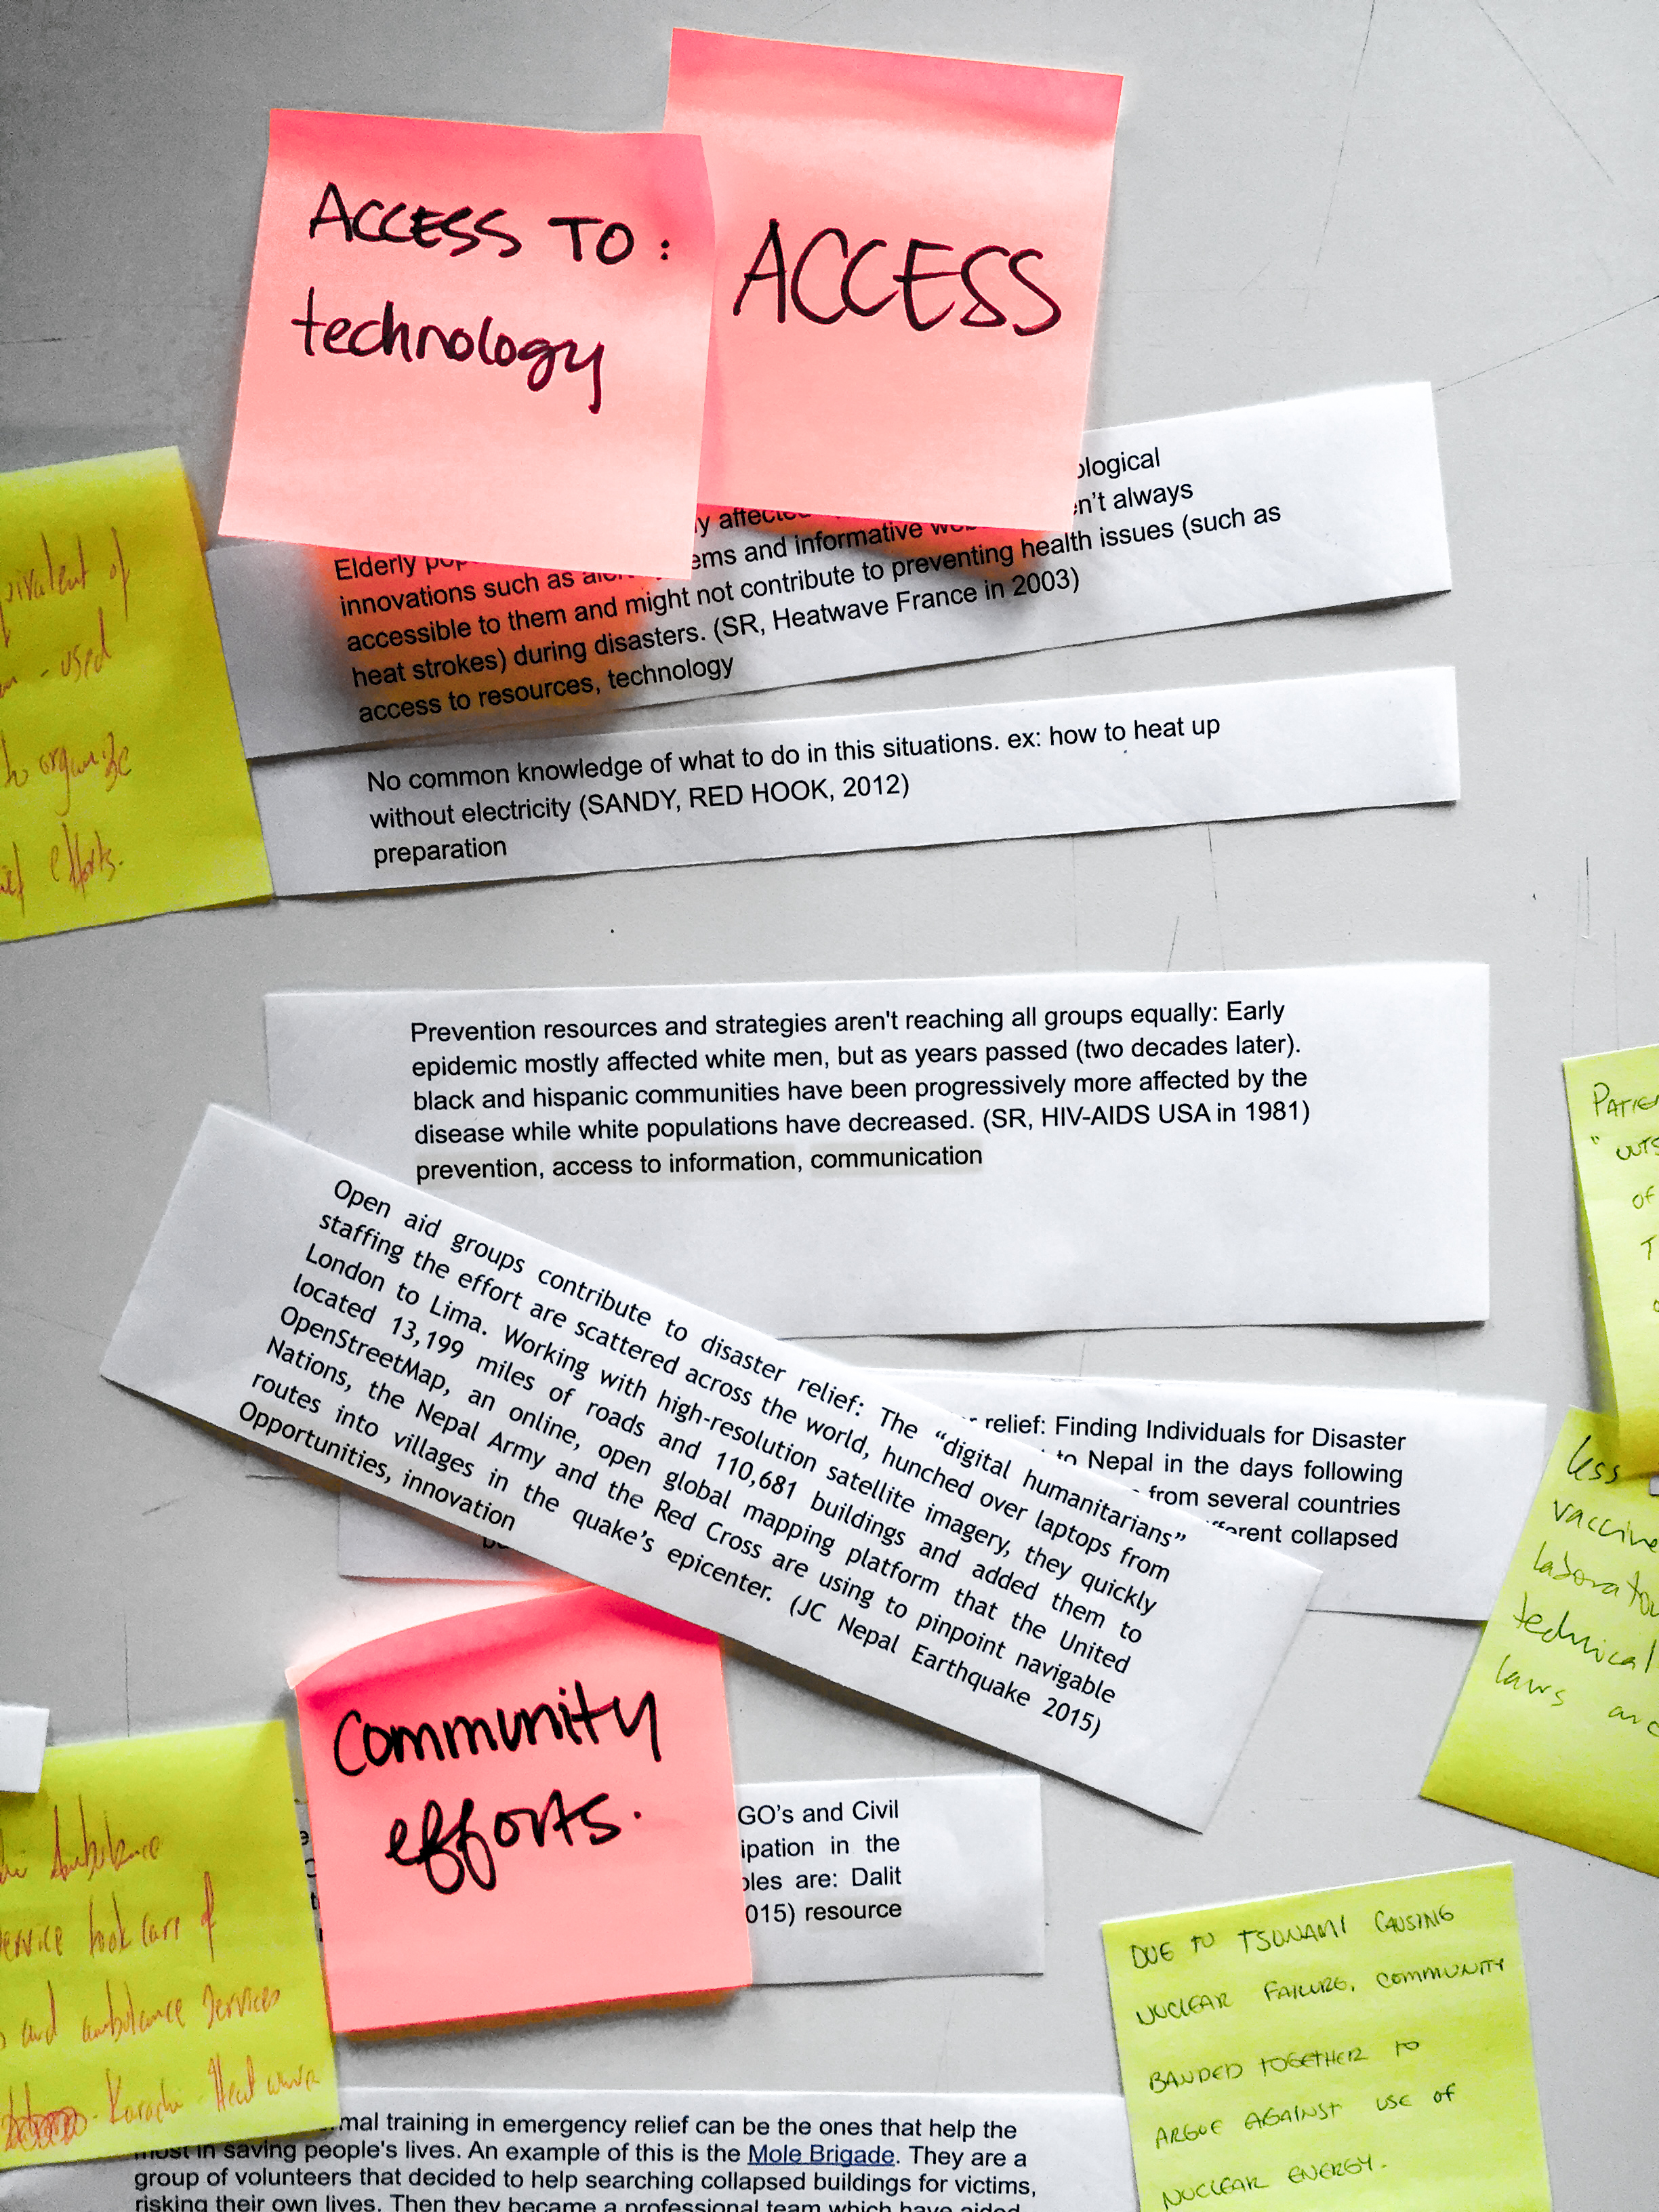 ACCESS TO:
technology
ACCESS
ological
y affected
n't always
Elderly
ems and informative
innovations such as
accessible to them and might not contribute to preventing health issues (such as
heat strokes) during disasters. (SR, Heatwave France in 2003)
access to resources, technology
of
- used
to organize
efforts.
No common knowledge of what to do in this situations. ex: how to heat up
without electricity (SANDY, RED HOOK, 2012)
preparation
Prevention resources and strategies aren't reaching all groups equally: Early
epidemic mostly affected white men, but as years passed (two decades later).
black and hispanic communities have been progressively more affected by the
disease while white populations have decreased. (SR, HIV-AIDS USA in 1981)
prevention, access to information, communication
Open aid groups contribute to disaster relief: The "digital humanitarians"
staffing the effort are scattered across the world, hunched over laptops from
London to Lima. Working with high-resolution satellite imagery, they quickly
located 13,199 miles of roads and 110,681 buildings and added them to
OpenStreetMap, an online, open global mapping platform that the United
Nations, the Nepal Army and the Red Cross are using to pinpoint navigable
routes into villages in the quake's epicenter. (JC Nepal Earthquake 2015)
Opportunities, innovation
relief: Finding Individuals for Disaster
to Nepal in the days following
from several countries
collapsed
of
less
vaccine
technical
laws and
Community
efforts.
GO's and Civil
ipation in the
ples are: Dalit
015) resource
Ambulance
service took care of
and ambulance services
- Karachi - Heat wave
DUE TO TSUNAMI CAUSING
NUCLEAR FAILURE, COMMUNITY
BANDED TOGETHER TO
ARGUE AGAINST USE OF
NUCLEAR ENERGY.
mal training in emergency relief can be the ones that help the
most in saving people's lives. An example of this is the Mole Brigade. They are a
group of volunteers that decided to help searching collapsed buildings for victims,
risking their own lives. Then they became a professional team which have aided